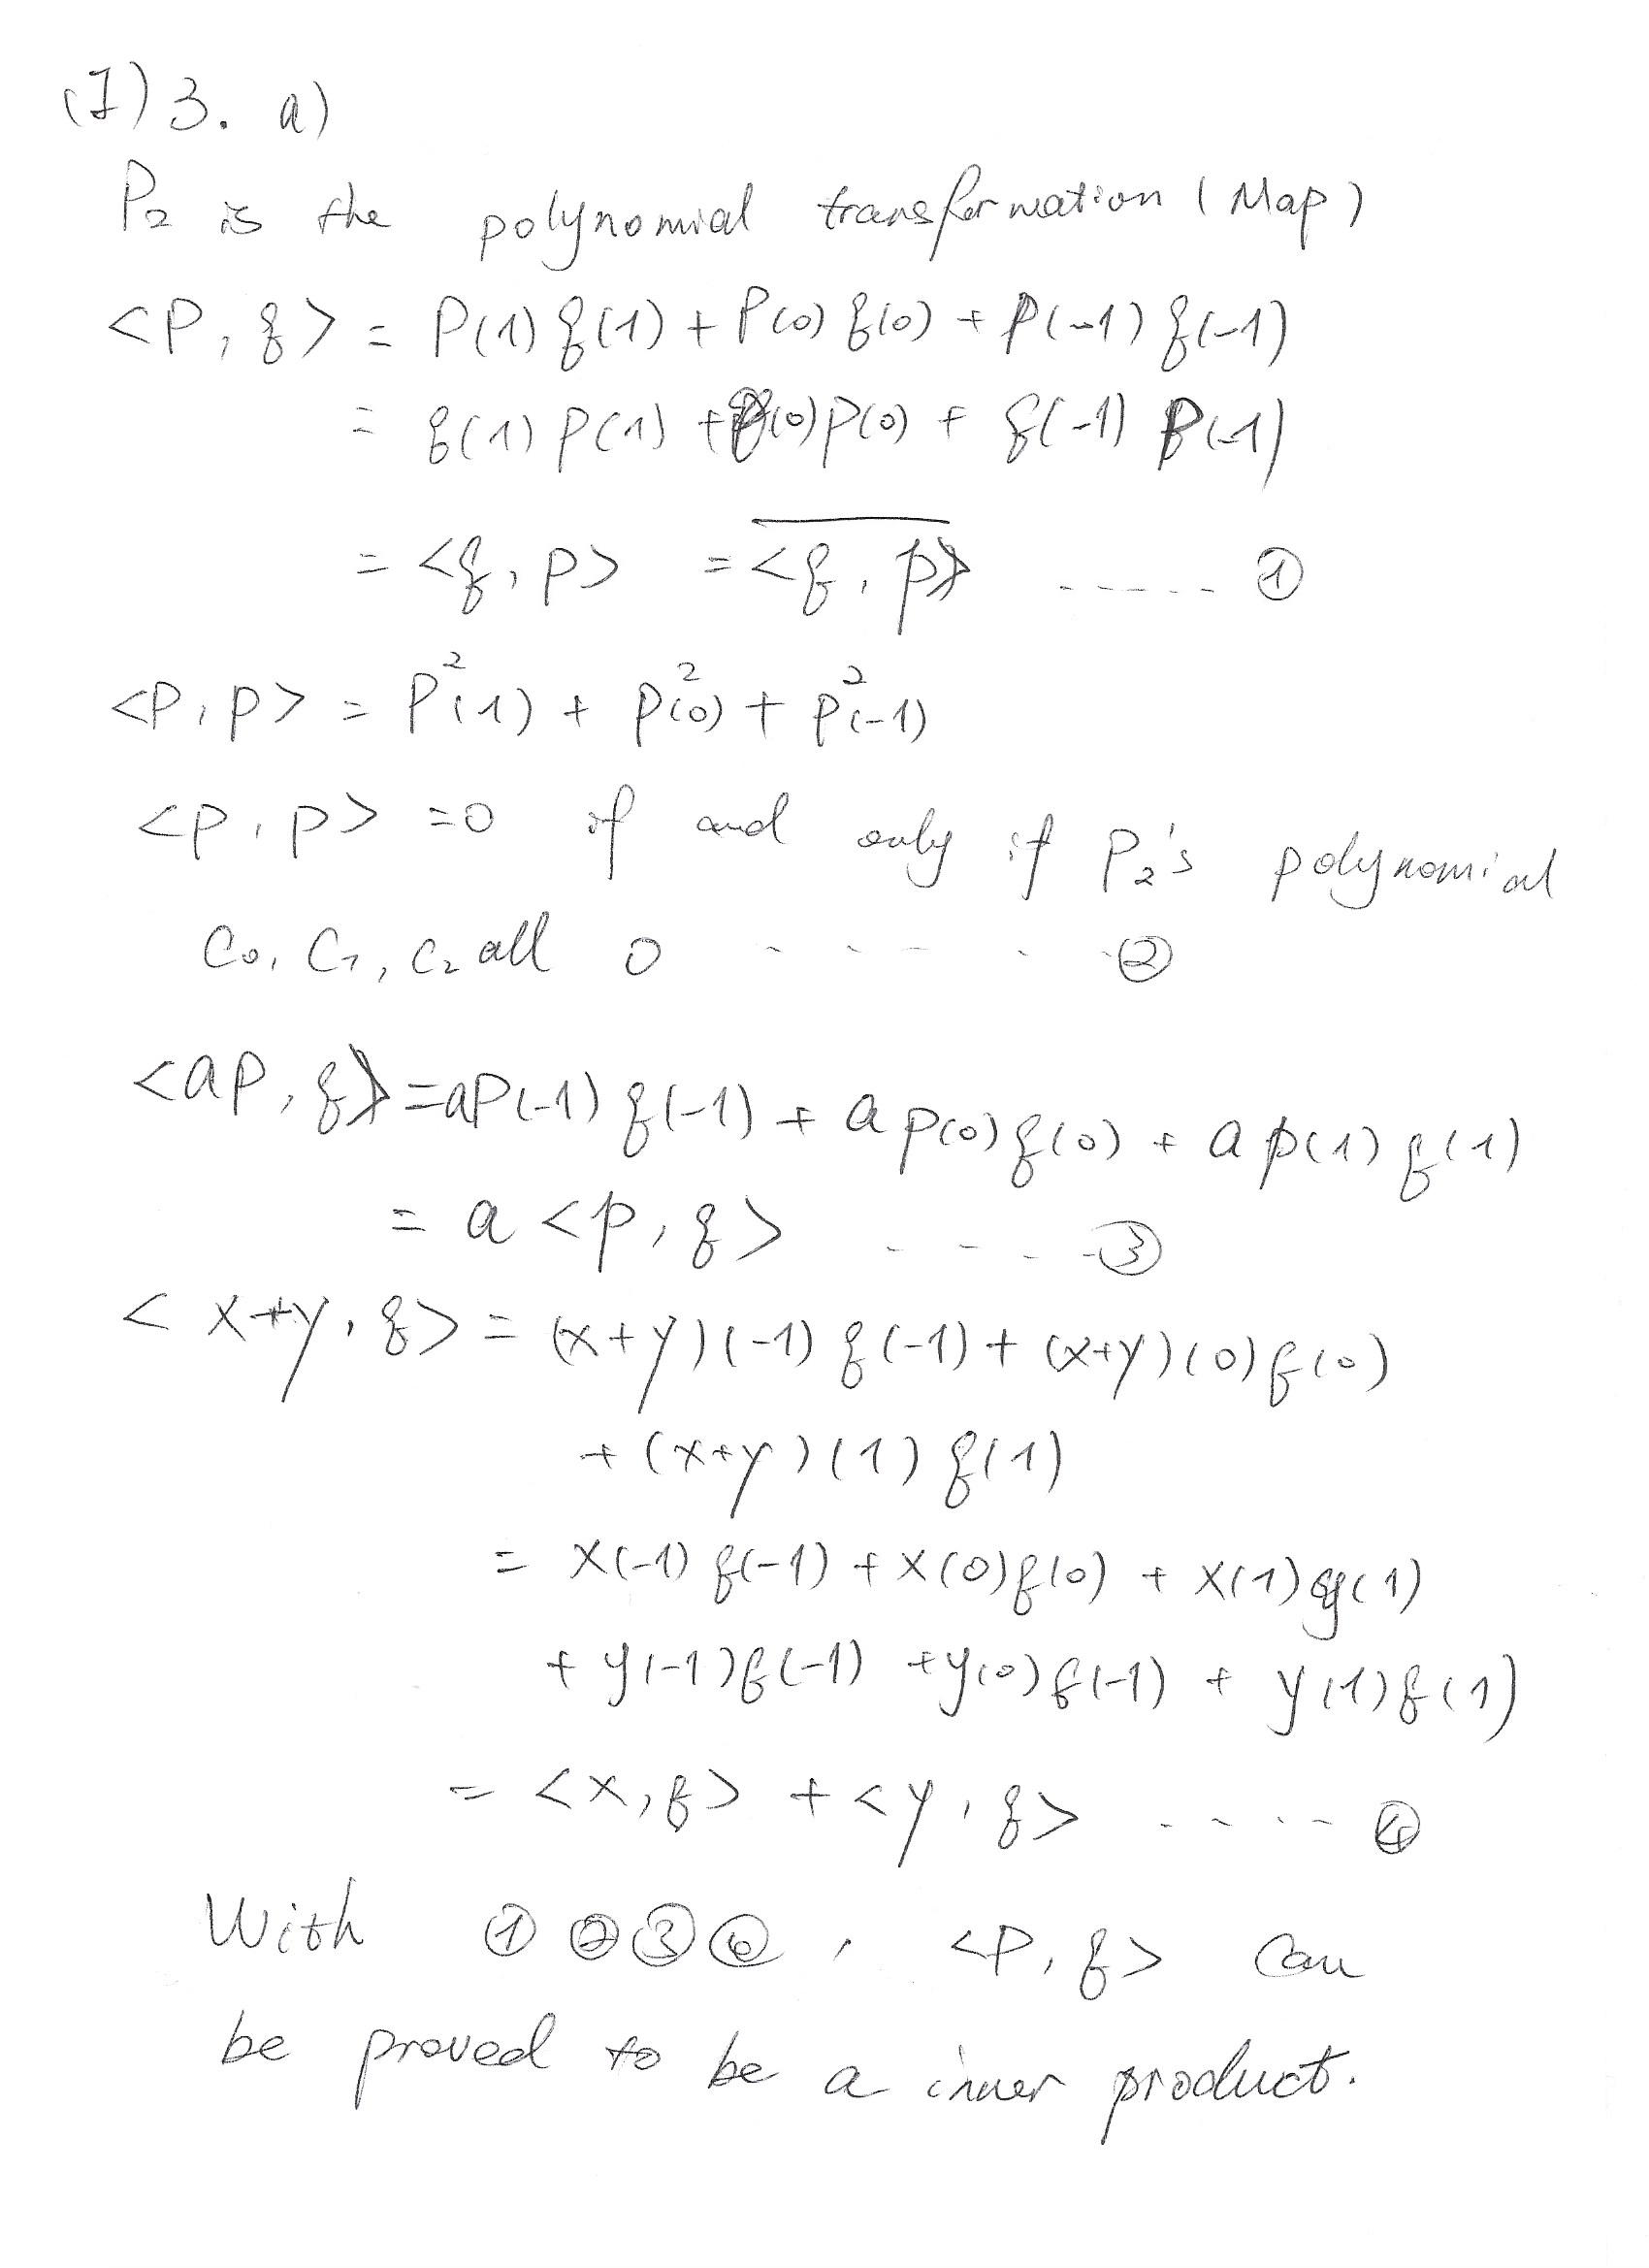 (I) 3. a)
P₂ is the polynomial transformation (Map)
<P, q> = P(1) q(1) + P(0) q(0) + P(-1) q(-1)
= q(1) P(1) + q(0) P(0) + q(-1) P(-1)
= <q, P> = \overline{<q, p>} ..... ①
<P, P> = P²(1) + P²(0) + P²(-1)
<P, P> = 0 if and only if P₂'s polynomial
C₀, C₁, C₂ all 0 ..... ②
<aP, q> = aP(-1) q(-1) + a p(0) q(0) + a p(1) q(1)
= a <p, q> ..... ③
< x+y, q> = (x+y)(-1) q(-1) + (x+y)(0) q(0)
+ (x+y)(1) q(1)
= x(-1) q(-1) + x(0) q(0) + x(1) q(1)
+ y(-1) q(-1) + y(0) q(-1) + y(1) q(1)
= <x, q> + <y, q> ..... ④
With ① ② ③ ④, <P, q> can
be proved to be a inner product.